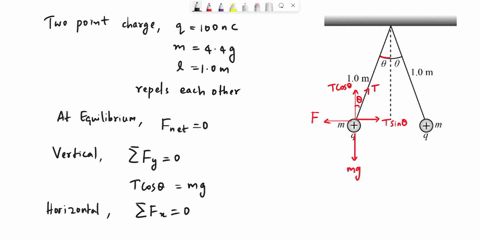 Two point charge, q = 100 nC
m = 4.4g
l = 1.0m
repels each other
At Equilibrium, Fnet = 0
Vertical, ΣFy = 0
Tcosθ = mg
Horizontal, ΣFx = 0
θ θ
1.0 m 1.0 m
Tcosθ T
θ
F
m m
Tsinθ
q q
mg